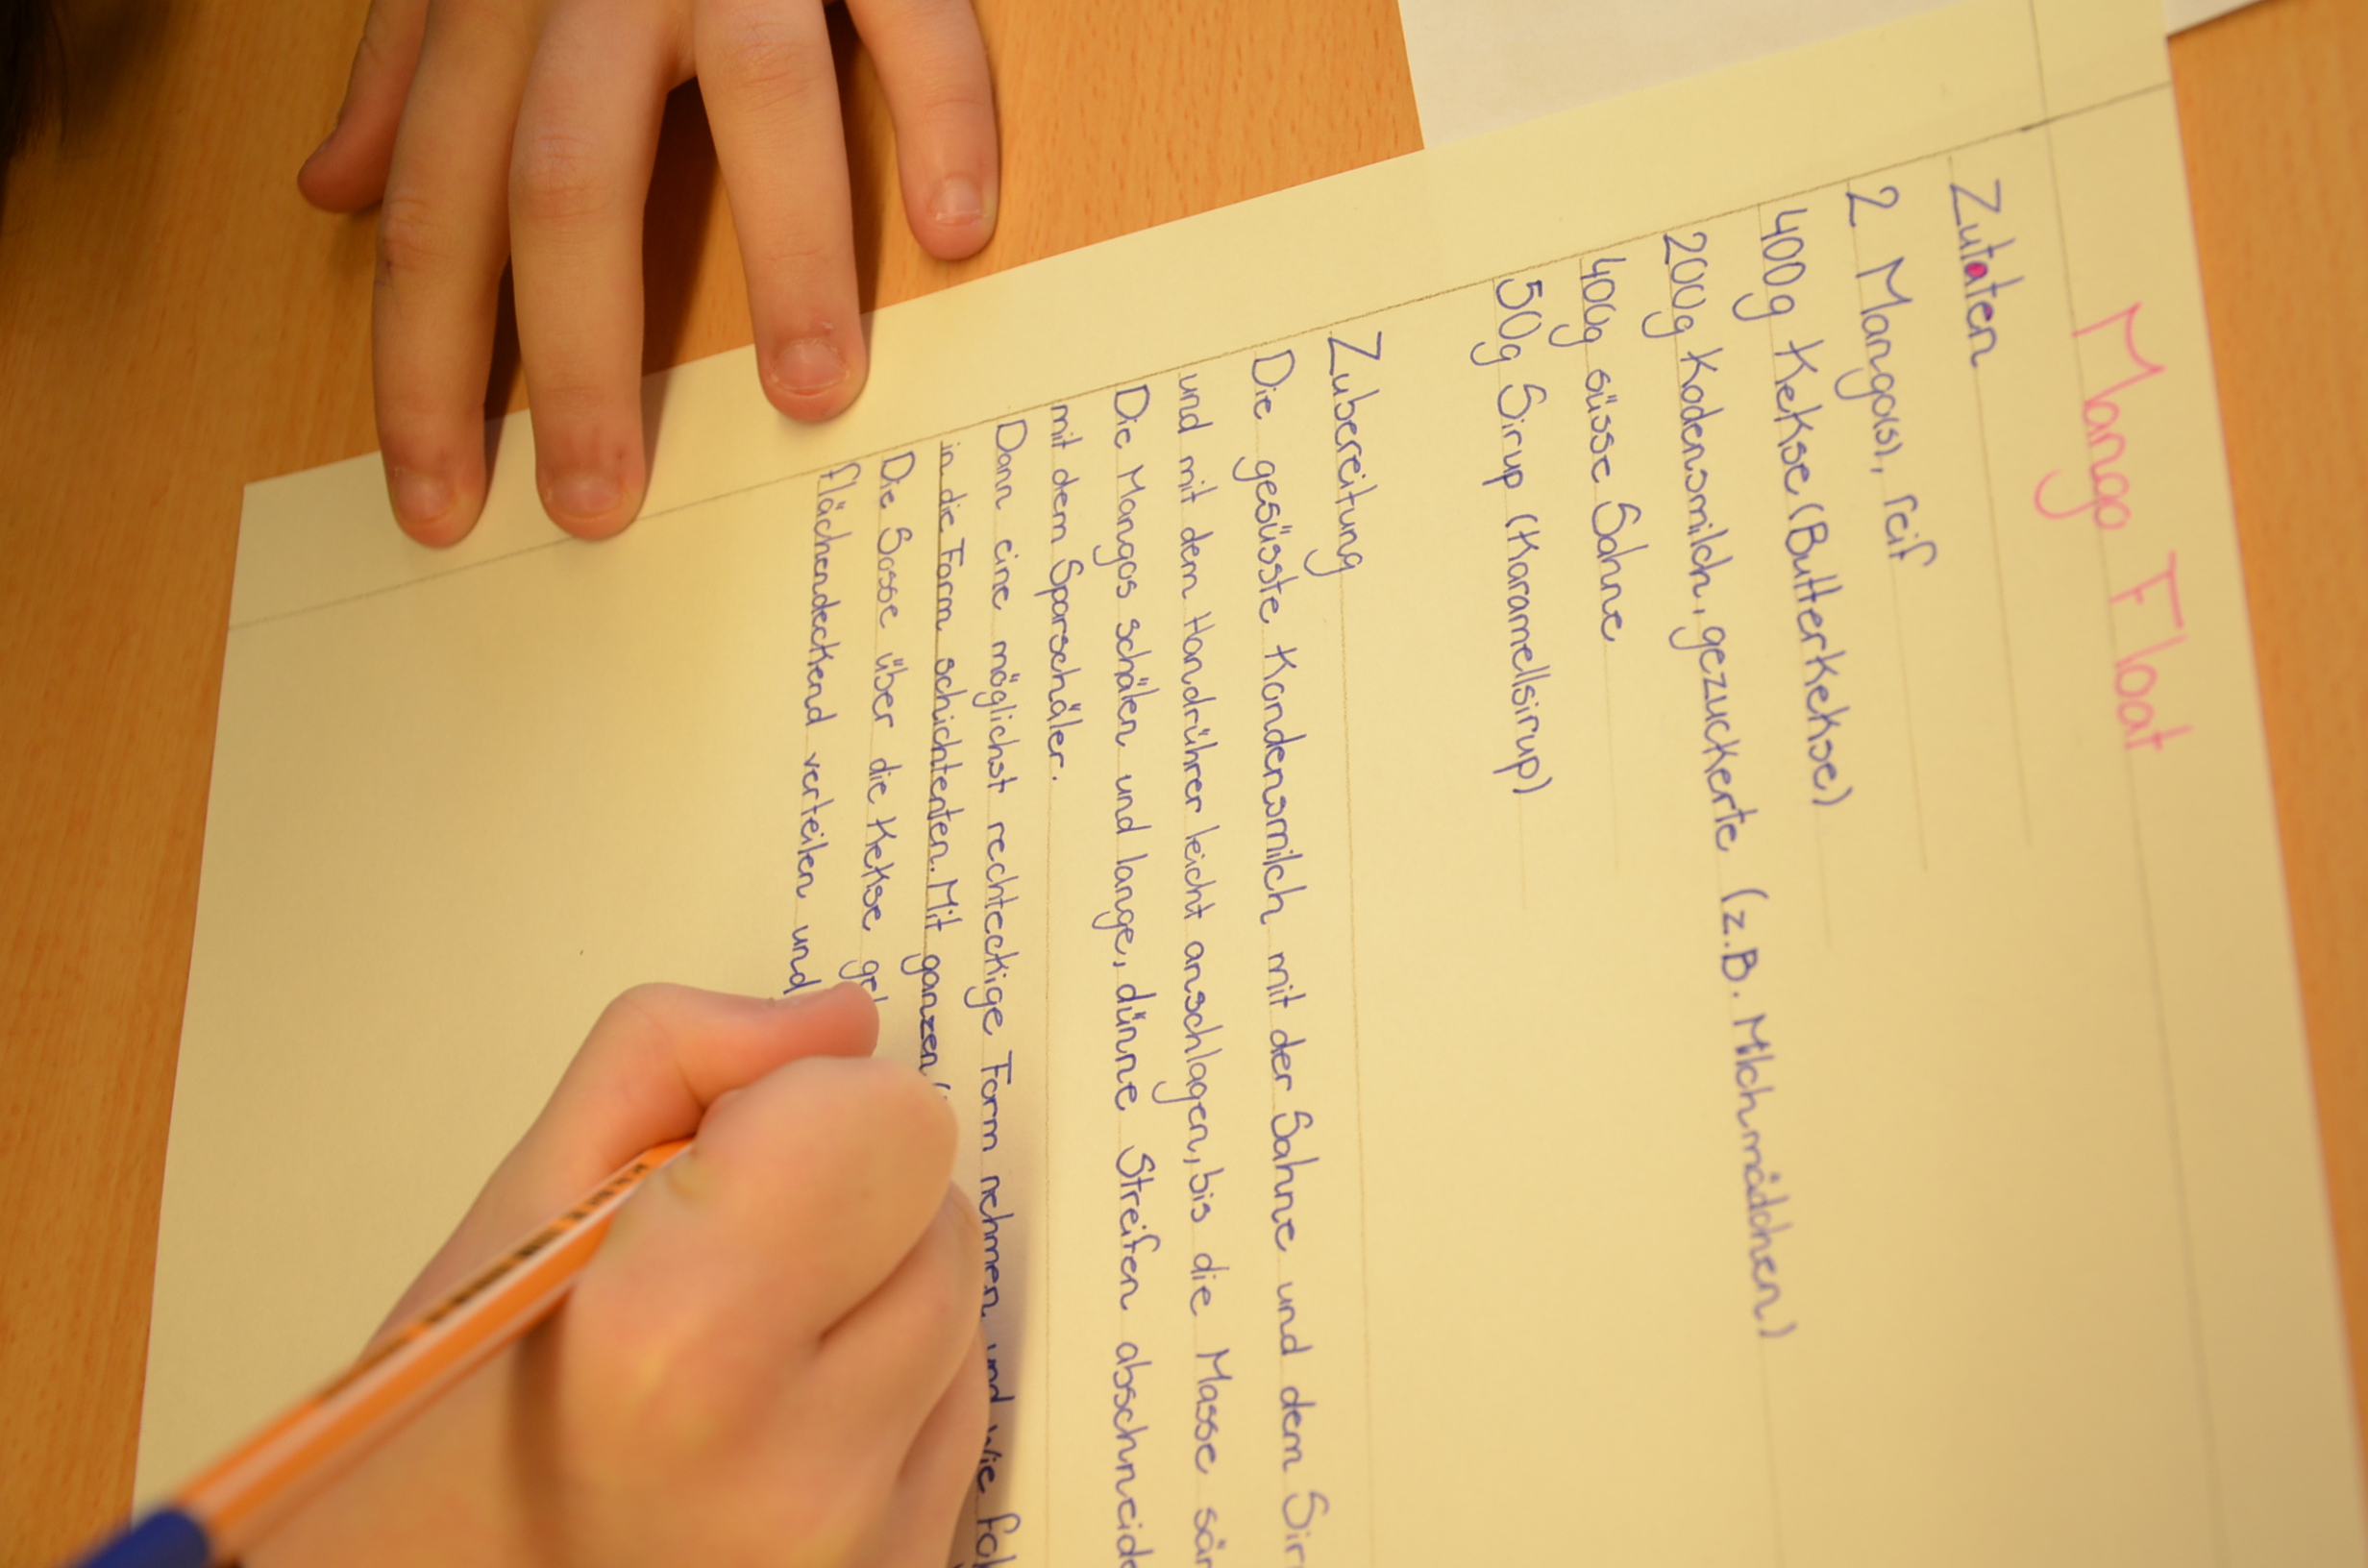 Mango Float
Zutaten
2 Mango(s), reif
400g Kekse (Butterkekse)
200g Kodensmilch, gezuckerte (z.B. Milchmädchen)
400g süsse Sahne
50g Sirup (Karamellsirup)
Zubereitung
Die gesüsste Kondensmilch mit der Sahne und dem Sir
und mit dem Handrührer leicht anschlagen, bis die Masse
Die Mangos schälen und lange, dünne Streifen abschneide
mit dem Sparschäler.
Dann eine möglichst rechteckige Form nehmen und wie fol
in die Form schichtenten. Mit ganzen
Die Sosse über die Kekse
flächendeckend verteilen und